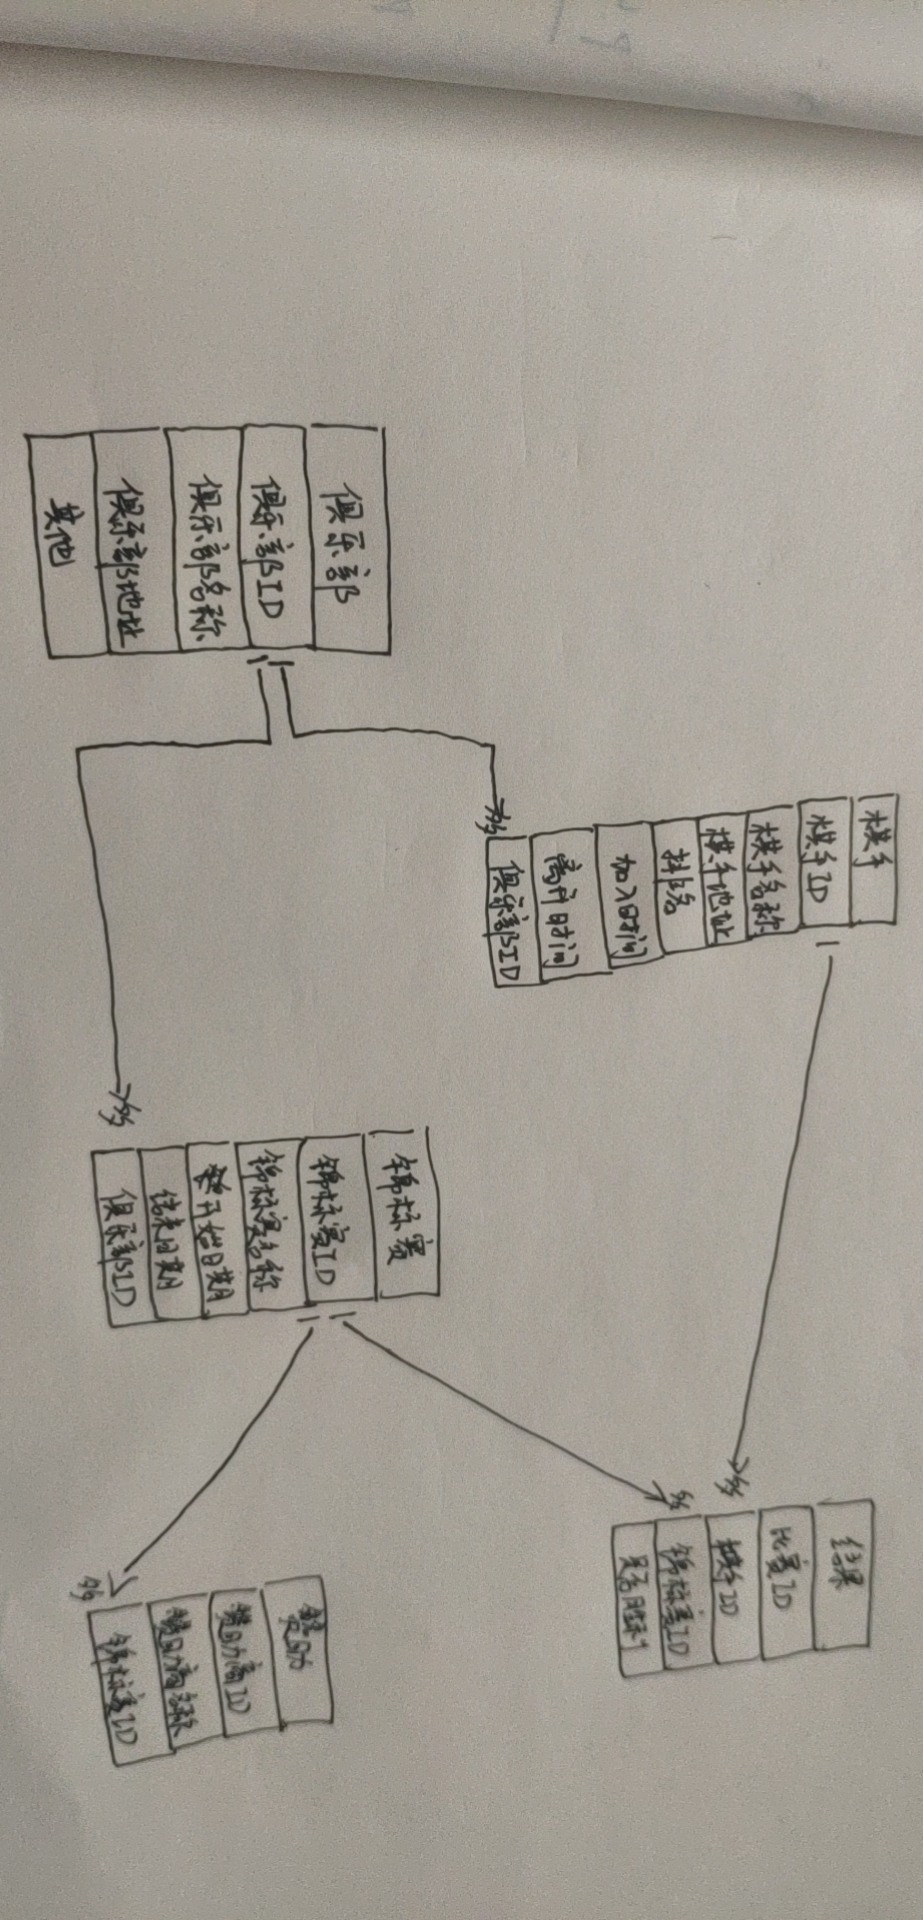 俱乐部
俱乐部ID
俱乐部名称
俱乐部地址
其他
1
1
多
多
棋手
棋手ID
棋手名称
棋手地址
排名
加入时间
离开时间
俱乐部ID
1
多
锦标赛
锦标赛ID
锦标赛名称
开始日期
结束日期
俱乐部ID
1
1
多
多
结果
比赛ID
棋手ID
锦标赛ID
是否胜利
赞助
赞助商ID
赞助商名称
锦标赛ID